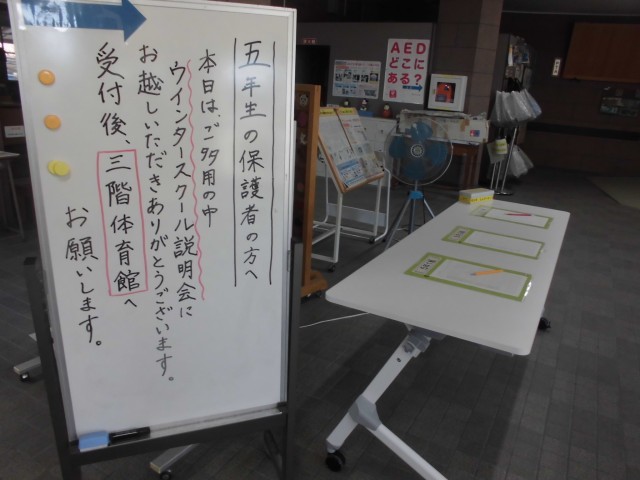 五年生の保護者の方へ
本日は、ご多用の中
ウインタースクール説明会に
お越しいただきありがとうございます。
受付後、三階体育館へ
お願いします。
AED
どこに
ある?